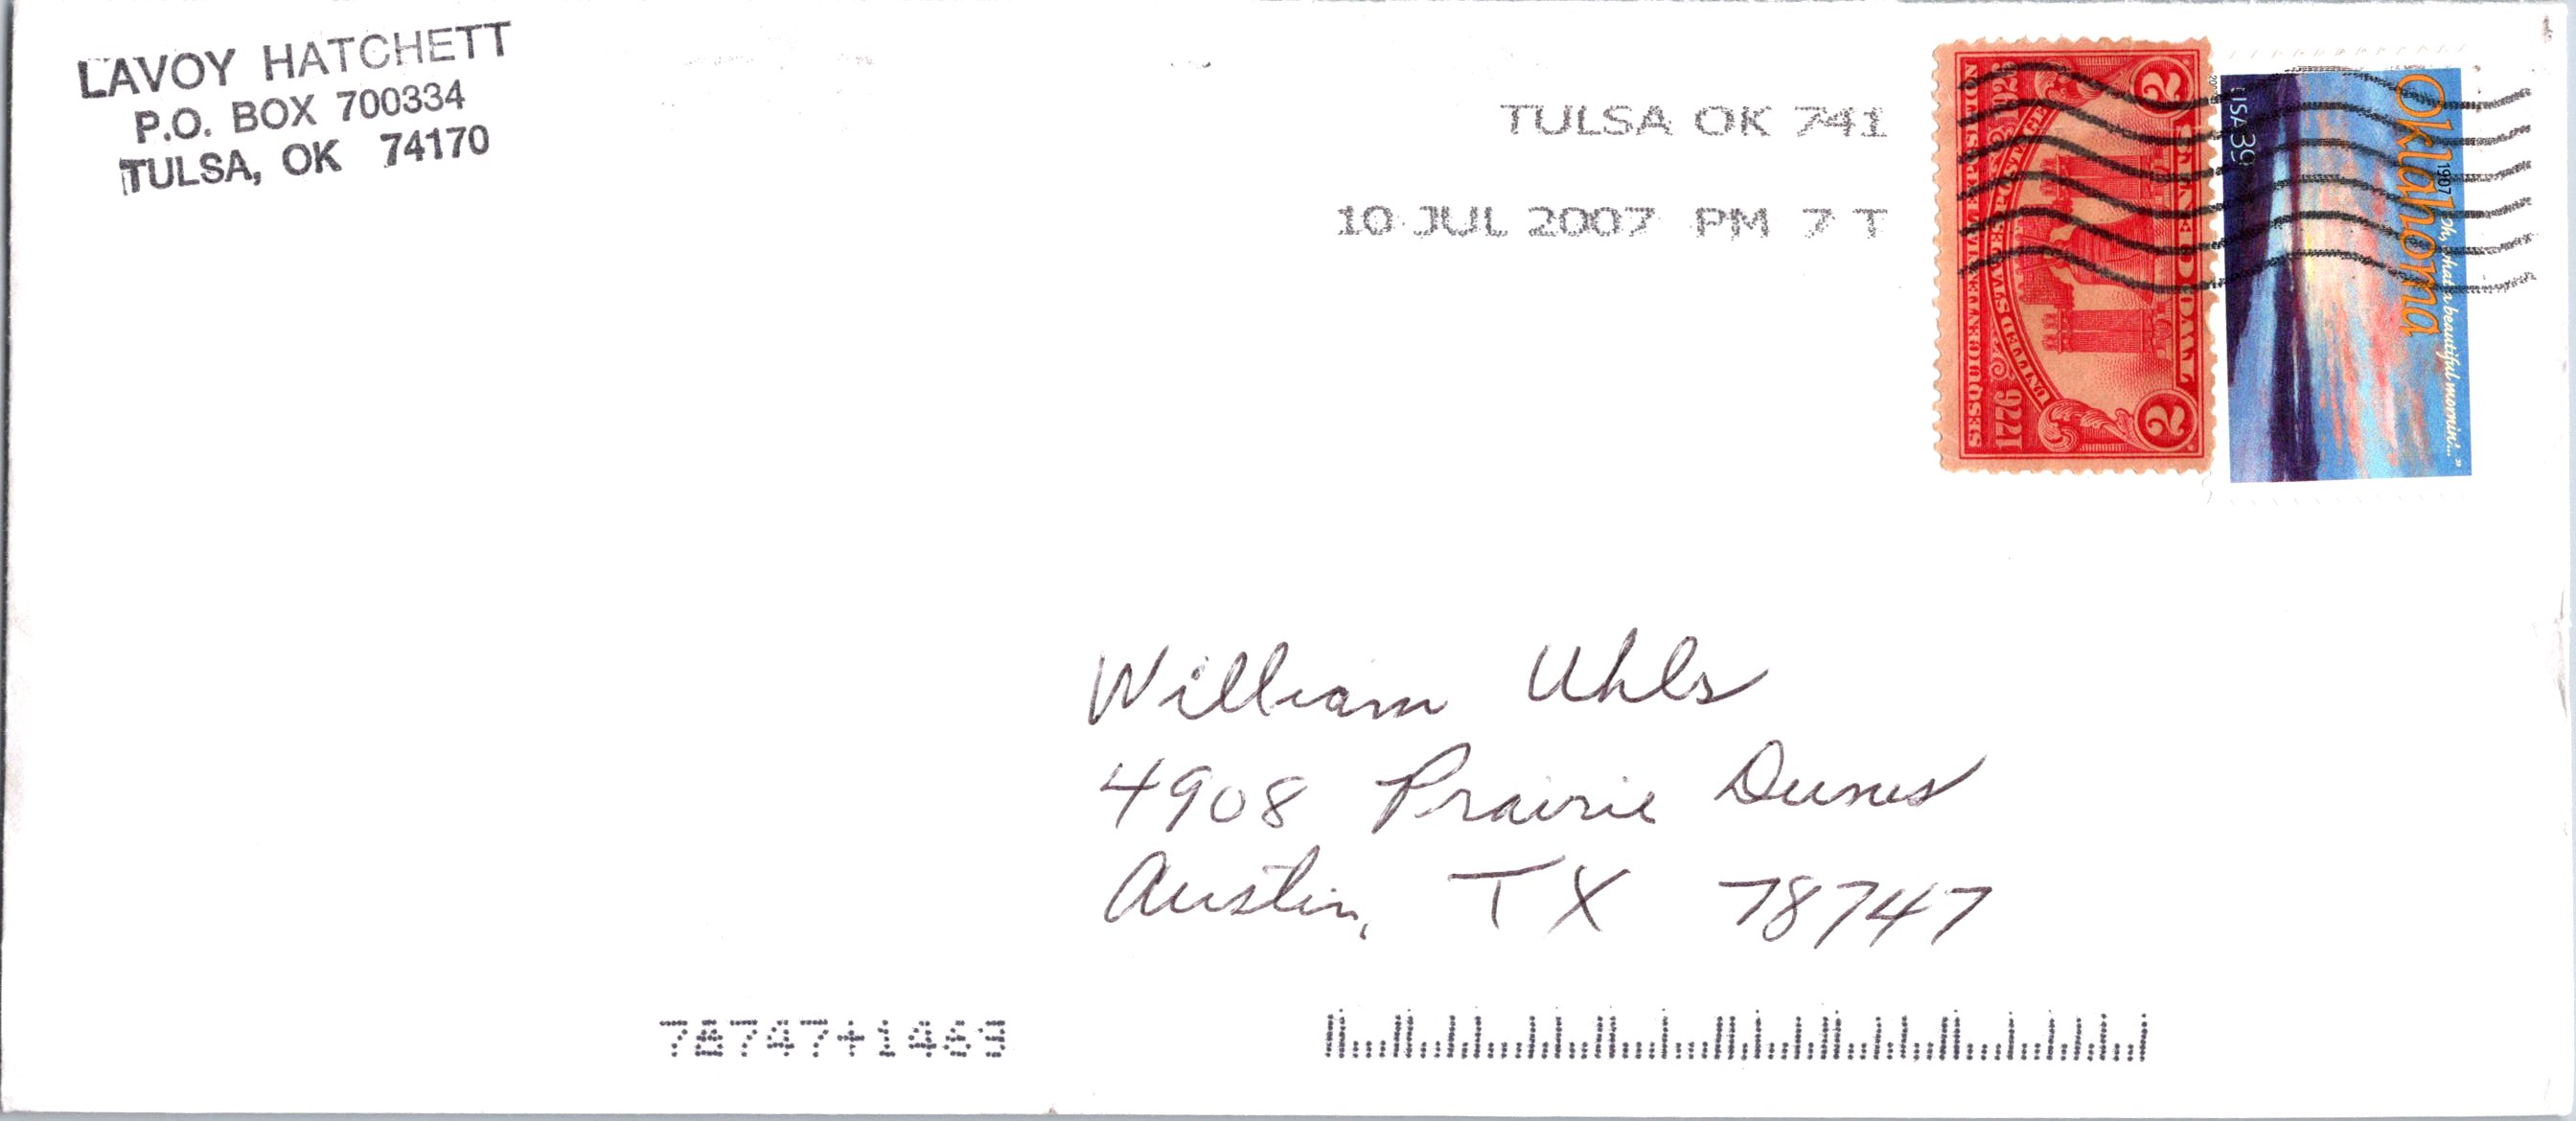 LAVOY HATCHETT
P.O. BOX 700334
TULSA, OK 74170
TULSA OK 741
10 JUL 2007 PM 7 T
SESQUICENTENNIAL EXPOSITION
1776 1926
UNITED STATES POSTAGE
2 2
Oklahoma
1907
USA 39
William Uhls
4908 Prairie Dunes
Austin, TX 78747
78747+1469